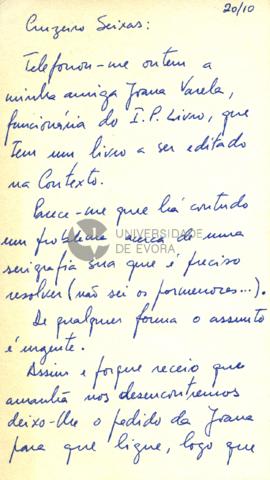 20/10
Cruzeiro Seixas:
Telefonou-me ontem a
minha amiga Joana Varela,
funcionária do I.P. Livro, que
tem um livro a ser editado
na Contexto.
Parece-me que há contudo
um problema acerca de uma
serigrafia sua que é preciso
resolver (não sei os pormenores...).
De qualquer forma o assunto
é urgente.
Assim e porque receio que
amanhã nos desencontremos
deixo-lhe o pedido da Joana
para que ligue, logo que
UNIVERSIDADE
DE ÉVORA